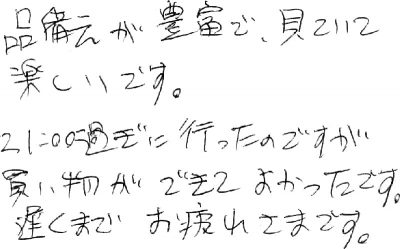 品備えが豊富で、見ていて
楽しいです。
21:00過ぎに行ったのですが
買い物ができてよかったです。
遅くまでお疲れさまです。